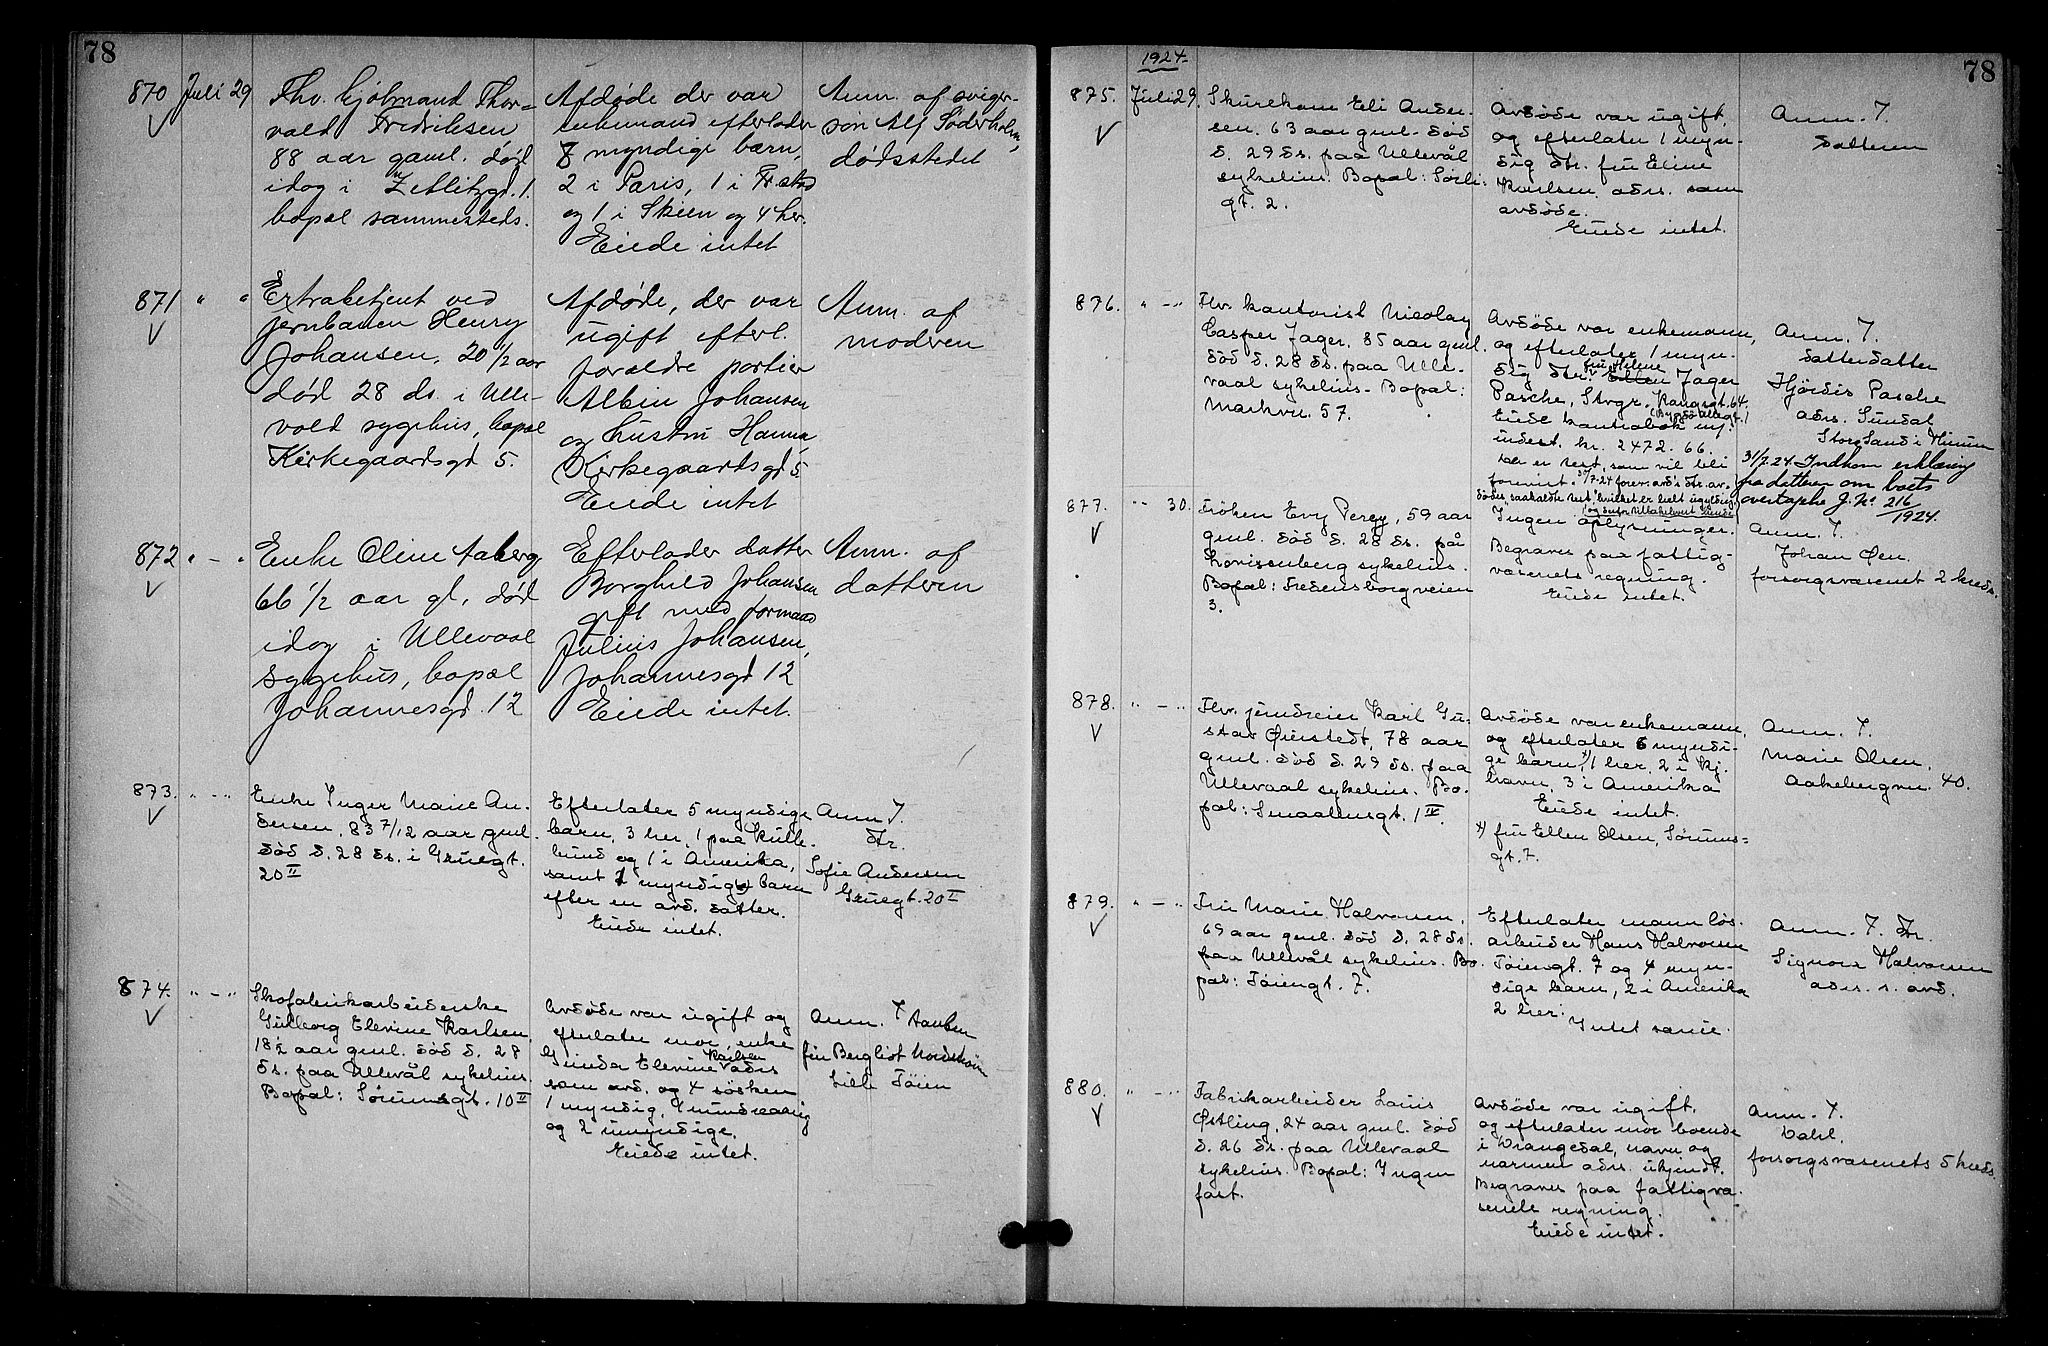 78
870 Juli 29
Fhv. kjøbmand Thor-
vald Fredriksen
88 aar gaml. død
idag i Zetlitzgd. 1.
bopæl sammesteds.
Afdøde der var
enkemand efterlader
8 myndige børn,
2 i Paris, 1 i Fr.stad
og 1 i Skien og 4 her.
Eiede intet
Anm. af sviger-
søn Alf Söderholm,
dødsstedet
871 " "
Extrabetjent ved
jernbanen Henry
Johansen, 20 1/2 aar
død 28 ds. i Ulle-
vold sygehus, bopæl
Kirkegaardsgd 5.
Afdøde, der var
ugift efterl.
forældre portier
Albin Johansen
og hustru Hanna
Kirkegaardsgd 5
Eiede intet
Anm. af
moderen
872 " - "
Enke Oline Aaberg
66 1/2 aar gl. død
idag i Ullevaal
sygehus, bopæl
Johannesgd. 12
Efterlader datter
Borghild Johansen
gift med formand
Julius Johansen,
Johannesgd 12
Eiede intet.
Anm. af
datteren
873. " - "
Enke Inger Marie An-
dersen, 83 7/12 aar gml.
død d. 28 ds. i Gruegt.
20 II
Efterlater 5 myndige
barn, 3 her, 1 paa Kulle-
bund og 1 i Amerika,
samt 1 myndig barn
efter en avd. datter.
Eiede intet.
Anm. f.
Dtr.
Sofie Andersen
Gruegt. 20 II
874. " - "
Skofabrikarbeiderske
Gulborg Elevine Karlsen,
18 1/2 aar gml. død d. 28
ds. paa Ullevål sykehus.
Bopæl: Sörumsgt. 10 II
Avdöde var ugift og
efterlater mor, enke
Gunda Elevine Karlsen adrs
som avd. og 4 søsken
1 myndig, 1 mindreaarig
og 2 umyndige.
Eiede intet.
Anm. f. tanten
fru Bergliot
Lille Töien
78
1924.
875. Juli 29.
Skurekone Eli Ander-
sen. 63 aar gml. död
d. 29 ds. paa Ullevål
sykehus. Bopæl: Sörli-
gt. 2.
Avdöde var ugift,
og efterlater 1 myn-
dig dtr. fru Eline
Karlsen, adrs. som
avdöde.
Eiede intet.
Anm. f.
datteren
876. " - "
Fhv. kontorist Nicolay
Casper Jager, 85 aar gml.
död d. 28 ds. paa Ulle-
vaal sykehus. Bopæl:
Markvn. 57.
Avdöde var enkemann,
og efterlater 1 myn-
dig dtr. fru Helene Jager
Pasche, Stvgr.
(Bygdö Allegt. 1
Eiede kontrabok m/
indest. kr. 2472.66.
der er test, som vil bli
Anm. f.
datterdatter
Hjördis Pasche
adrs. Sundal
Store Sand i Hurum
31/7.24. Indkom erklæring
fra datteren om boets
overtagelse J. No 216/1924.
877. " - 30.
Fröken Evy Percy, 59 aar
gml. död d. 28 ds. på
Lovisenberg sykehus.
Bopæl: Fredensborgveien
3.
Ingen oplysninger.
Begraves paa fattig-
væsenets regning.
Eiede intet.
Anm. f.
Johan Öen.
forsorgsvæsenet 2 kreds.
878. " - "
Fhv. jerndreier Karl Gu-
stav Qvistedt, 78 aar
gml. död d. 29 ds. paa
Ullevaal sykehus. Bo-
pæl: Smaalensgt. 1 IV.
Avdöde var enkemann,
og efterlater 6 myndi-
ge barn x) 1 her, 2 i Kj.
havn, 3 i Amerika
Eiede intet.
x) fru Ellen Olsen, Sörums-
gt. 7.
Anm. f.
Marie Olsen,
Aakebergvn. 40.
879. " - "
Fru Marie Halvorsen,
69 aar gml. död d. 28 ds.
paa Ullevål sykehus. Bo-
pæl: Töiengt. 7.
Efterlater mann lös-
arbeider Hans Halvorsen
Töiengt. 7 og 4 myn-
dige barn, 2 i Amerika
2 her.
Intet særeie.
Anm. f. Dtr.
Signora Halvorsen
adrs. s. avd.
880. " - "
Fabrikarbeider Louis
Östling, 24 aar gml. död
d. 26 ds. paa Ullevaal
sykehus. Bopæl: Ingen
fast.
Avdöde var ugift.
og efterlater mor boende
i Drangedal, navn og
nærmere adrs. ukjendt.
Begraves paa fattigvæ-
senets regning.
Eiede intet.
Anm. f.
Dahl.
forsorgsvæsenets 5 kreds.